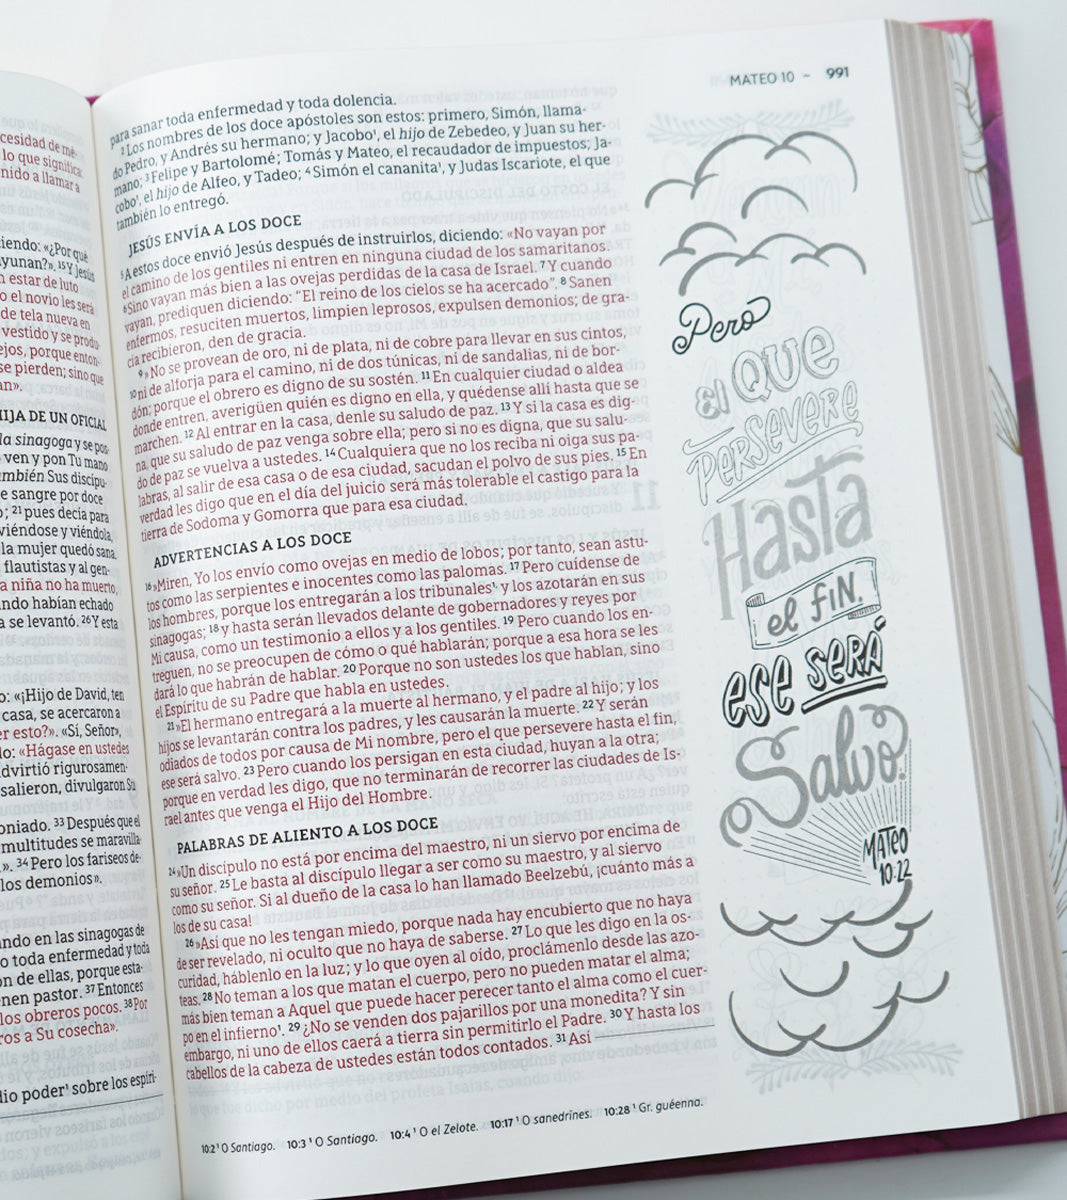 cesidad de mé-
lo que significa
nido a llamar a
ciendo: «¿Por qué
yunan?». 15 Y Jesús
n estar de luto
o el novio les será
de tela nueva en
vestido y se produ-
ejos, porque enton-
se pierden; sino que
an».
HIJA DE UN OFICIAL
la sinagoga y se pos-
ven y pon Tu mano
también Sus discípu-
e sangre por doce
; 21 pues decía para
viéndose y viéndola,
la mujer quedó sana.
flautistas y al gen-
a niña no ha muerto,
ando habían echado
a se levantó. 26 Y esta
o: «¡Hijo de David, ten
casa, se acercaron a
er esto?». «Sí, Señor»,
do: «Hágase en ustedes
advirtió rigurosamen-
salieron, divulgaron Su
oniado. 33 Después que el
multitudes se maravilla-
». 34 Pero los fariseos de-
los demonios».
ando en las sinagogas de
o toda enfermedad y toda
ón de ellas, porque esta-
enen pastor. 37 Entonces
los obreros pocos. 38 Por
ros a Su cosecha».
dio poder¹ sobre los espíri-
MATEO 10 ~ 991
para sanar toda enfermedad y toda dolencia.
2 Los nombres de los doce apóstoles son estos: primero, Simón, llama-
do Pedro, y Andrés su hermano; y Jacobo¹, el hijo de Zebedeo, y Juan su her-
mano; 3 Felipe y Bartolomé; Tomás y Mateo, el recaudador de impuestos; Ja-
cobo¹, el hijo de Alfeo, y Tadeo; 4 Simón el cananita¹, y Judas Iscariote, el que
también lo entregó.
JESÚS ENVÍA A LOS DOCE
5 A estos doce envió Jesús después de instruirlos, diciendo: «No vayan por
el camino de los gentiles ni entren en ninguna ciudad de los samaritanos.
6 Sino vayan más bien a las ovejas perdidas de la casa de Israel. 7 Y cuando
vayan, prediquen diciendo: "El reino de los cielos se ha acercado". 8 Sanen
enfermos, resuciten muertos, limpien leprosos, expulsen demonios; de gra-
cia recibieron, den de gracia.
9 »No se provean de oro, ni de plata, ni de cobre para llevar en sus cintos,
10 ni de alforja para el camino, ni de dos túnicas, ni de sandalias, ni de bor-
dón; porque el obrero es digno de su sostén. 11 En cualquier ciudad o aldea
donde entren, averigüen quién es digno en ella, y quédense allí hasta que se
marchen. 12 Al entrar en la casa, denle su saludo de paz. 13 Y si la casa es dig-
na, que su saludo de paz venga sobre ella; pero si no es digna, que su salu-
do de paz se vuelva a ustedes. 14 Cualquiera que no los reciba ni oiga sus pa-
labras, al salir de esa casa o de esa ciudad, sacudan el polvo de sus pies. 15 En
verdad les digo que en el día del juicio será más tolerable el castigo para la
tierra de Sodoma y Gomorra que para esa ciudad.
ADVERTENCIAS A LOS DOCE
16 »Miren, Yo los envío como ovejas en medio de lobos; por tanto, sean astu-
tos como las serpientes e inocentes como las palomas. 17 Pero cuídense de
los hombres, porque los entregarán a los tribunales¹ y los azotarán en sus
sinagogas; 18 y hasta serán llevados delante de gobernadores y reyes por
Mi causa, como un testimonio a ellos y a los gentiles. 19 Pero cuando los en-
treguen, no se preocupen de cómo o qué hablarán; porque a esa hora se les
dará lo que habrán de hablar. 20 Porque no son ustedes los que hablan, sino
el Espíritu de su Padre que habla en ustedes.
21 »El hermano entregará a la muerte al hermano, y el padre al hijo; y los
hijos se levantarán contra los padres, y les causarán la muerte. 22 Y serán
odiados de todos por causa de Mi nombre, pero el que persevere hasta el fin,
ese será salvo. 23 Pero cuando los persigan en esta ciudad, huyan a la otra;
porque en verdad les digo, que no terminarán de recorrer las ciudades de Is-
rael antes que venga el Hijo del Hombre.
PALABRAS DE ALIENTO A LOS DOCE
24 »Un discípulo no está por encima del maestro, ni un siervo por encima de
su señor. 25 Le basta al discípulo llegar a ser como su maestro, y al siervo
como su señor. Si al dueño de la casa lo han llamado Beelzebú, ¡cuánto más a
los de su casa!
26 »Así que no les tengan miedo, porque nada hay encubierto que no haya
de ser revelado, ni oculto que no haya de saberse. 27 Lo que les digo en la os-
curidad, háblenlo en la luz; y lo que oyen al oído, proclámenlo desde las azo-
teas. 28 No teman a los que matan el cuerpo, pero no pueden matar el alma;
más bien teman a Aquel que puede hacer perecer tanto el alma como el cuer-
po en el infierno¹. 29 ¿No se venden dos pajarillos por una monedita? Y sin
embargo, ni uno de ellos caerá a tierra sin permitirlo el Padre. 30 Y hasta los
cabellos de la cabeza de ustedes están todos contados. 31 Así
10:2 ¹ O Santiago. 10:3 ¹ O Santiago. 10:4 ¹ O el Zelote. 10:17 ¹ O sanedrines. 10:28 ¹ Gr. guéenna.
Pero
el QUE
PERSEVERE
Hasta
el fiN,
ese SERÁ
Salvo.
MATEO
10:22